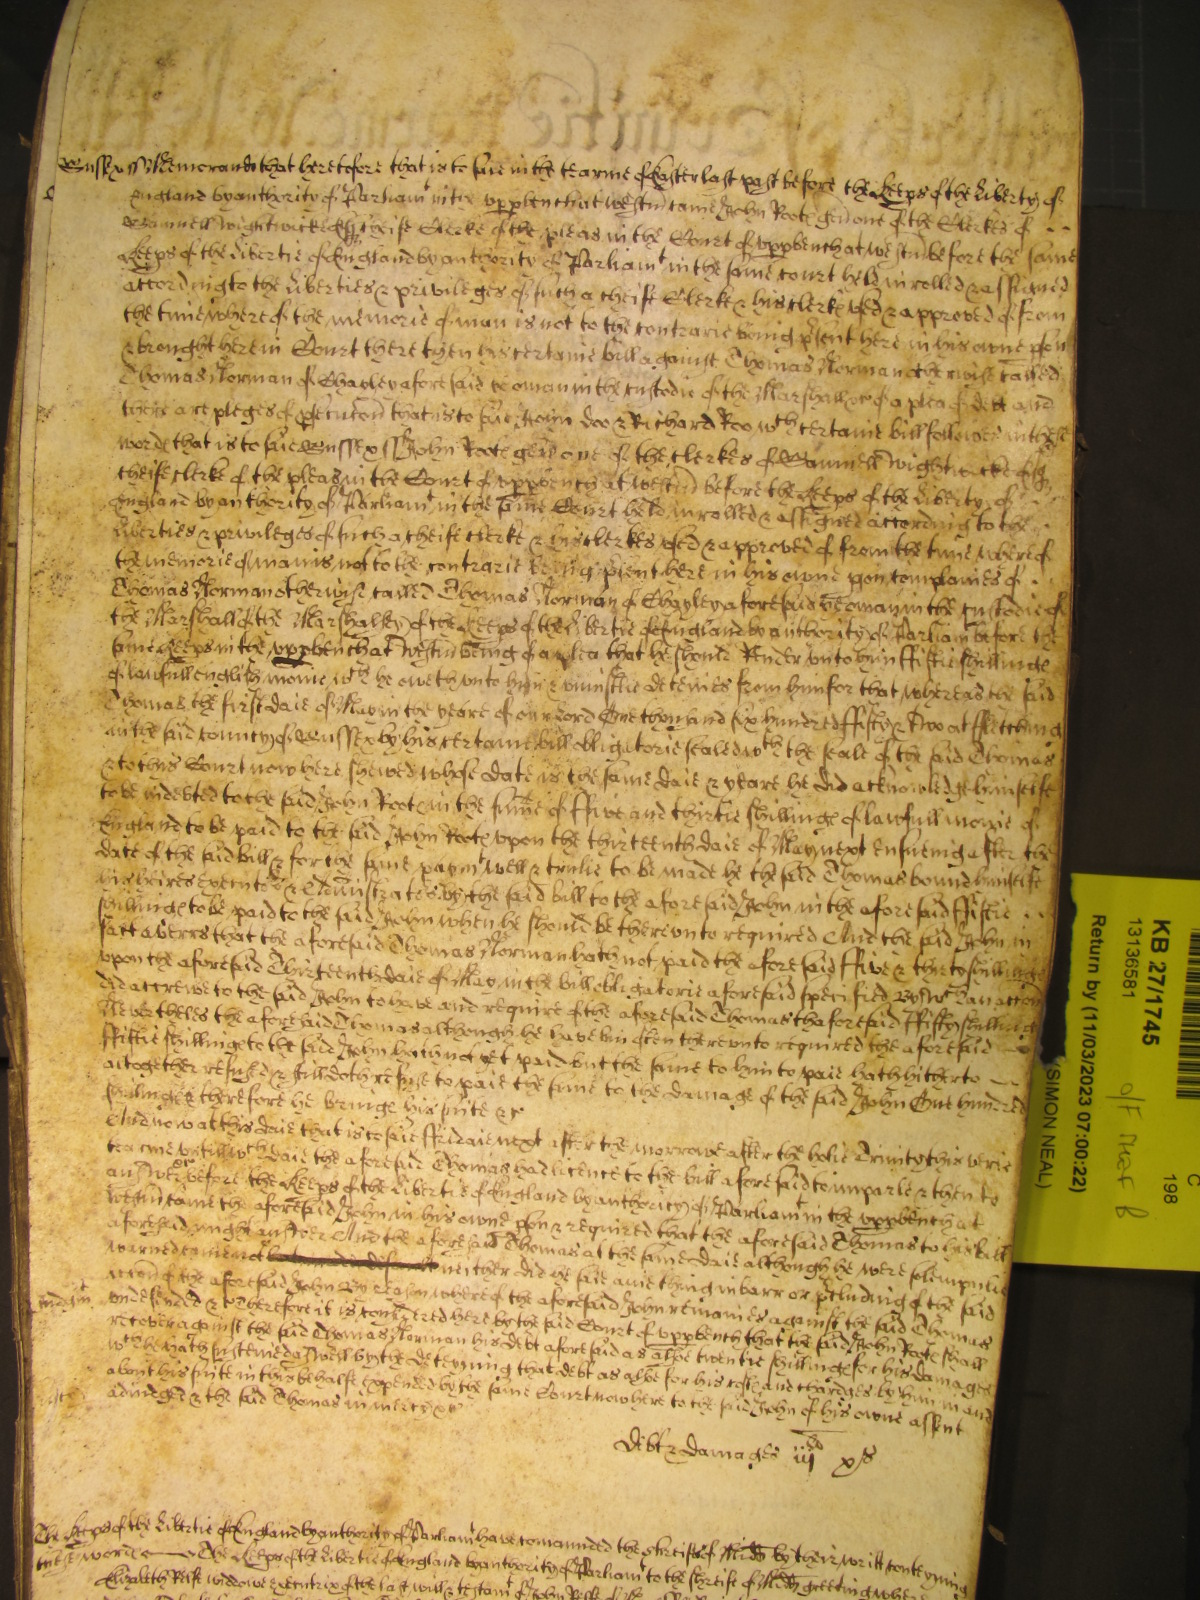 Sussex ss Memorand that heretofore that is to saie in the tearme of Easter last past before the Keeps of the Liberty of
England by authority of Parliamt in the uppbench at Westm came John Roote gen one of the Clerkes of
Samuell Wightwicke Esq cheife Clerke of the pleas in the Court of uppbench at Westm before the same
Keeps of the Libertie of England by authority of Parliamt in the same court held inrolled & assigned
according to the Liberties & priviledges of such a cheife Clerke & his clerkes used & approved of from
the time whereof the memorie of man is not to the contrarie being psent here in his owne pson
& brought here in Court there then his certaine bill against Thomas Norman otherwise called
Thomas Norman of Chayley aforesaid yeoman in the custodie of the Marshall &c of a plea of debt and
there are pleges of psecucon that is to saie John Doo & Richard Roo wch certaine bill followes in these
words that is to saie Sussex ss John Roote gen one of the clerkes of Samuell Wightwicke Esq
cheife clerke of the pleas in the Court of uppbench at Westm before the Keeps of the Liberty of
England by authority of Parliamt in the same Court held inrolled & assigned according to the
Liberties & priviledges of such a cheife clerke & his clerkes used & approved of from the time whereof
the memorie of man is not to the contrarie being psent here in his owne pson complaines of
Thomas Norman otherwise called Thomas Norman of Chayley aforesaid yeoman in the custodie of
the Marshall of the Marshalsey of the Keeps of the Libertie of England by authority of Parliam before the
same Keeps in the uppbench at Westm being of a plea that he should Render unto him Fiftie shillings
of lawfull english monie wch he oweth unto him & uniustlie deteines from him for that whereas the said
Thomas the first daie of May in the yeare of our Lord One thousand six hundred fifty & two at Fletching
in the said county of Sussex by his certaine bill obligatorie sealed wth the seale of the said Thomas
& to this Court now here shewed whose date is the same daie & yeare he did acknowledge himselfe
to be indebted to the said John Roote in the summe of Five and thirtie shillings of lawfull monie of
England to be paid to the said John Roote upon the thirteenth daie of May next ensueing after the
date of the said bill & for the same paymt well & trulie to be made he the said Thomas bound himselfe
his heires executors & Administrators by the said bill to the aforesaid John in the aforesaid fiftie
shillings to be paid to the said John when he should be thereunto required And the said John in
fact averrs that the aforesaid Thomas Norman hath not paid the aforesaid Five & thirty shillings
upon the aforesaid Thirteenth daie of May in the bill obligatorie aforesaid specified By wch an action
did accrewe to the said John to have and require of the aforesaid Thomas the aforesaid Fifty shillings
Nevertheles the aforesaid Thomas although he have bin often thereunto required the aforesaid
Fiftie shillings to the said John hath not yet paid but the same to him to paie hath hitherto
altogether refused & still doth refuse to paie the same to the damage of the said John One hundred
shillings & therefore he brings his suite &c
And now at this daie that is to saie Fridaie next after the morrowe after the holie Trinity this verie
tearme untill wch daie the aforesaid Thomas had licence to the bill aforesaid to imparle & then to
answer before the Keeps of the Libertie of England by authority of Parliamt in the uppbench at
Westm came the aforesaid John in his owne pson & required that the aforesaid Thomas to his bill
aforesaid might answer And the aforesaid Thomas at the same daie although he were solempnlie
warned came not neither did he saie anie thing in barr or pcluding of the said
action of the aforesaid John By reason whereof the aforesaid John remaines against the said Thomas
undefended &c Therefore it is considered here by the said Court of uppbench that the said John Roote shall
recover against the said Thomas Norman his debt aforesaid as alsoe twentie shillings for his damages
wch he hath susteined aswell by the deteyning that debt as alsoe for his costs and chardges by him in and
about his suite in this behalfe expended by the same Court now here to the said John of his owne assent
adiudged & the said Thomas in mercy &c
Debt & damages iij li xs
The Keeps of the Libertie of England by authority of Parliamt have comaunded the Shreife of Midd by their writt conteyning
these words The Keeps of the Libertie of England by authority of Parliamt to the Shreife of Midd greeting where
KB 27/1745
13136581
Return by (11/03/2023 07:00:22)
(SIMON NEAL)
198
C